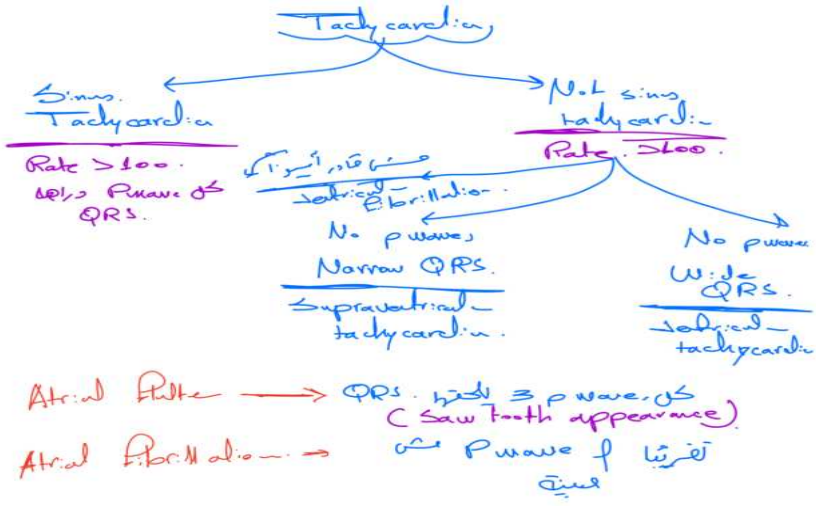 Tachycardia
Sinus
Tachycardia
Rate >100.
كل P wave وراها
QRS.
Not sinus
tachycardia
Rate >100.
مش قادر أميز
Ventricul-
Fibrillation.
No p wave,
Narrow QRS.
Supraventricul-
tachycardia.
No p wave
Wide
QRS.
Ventricul-
tachycardia
Atrial Flutter → كل 3 p wave, QRS.
(Saw tooth appearance)
Atrial Fibrillation → تقريبا ال P wave مش
مبينة